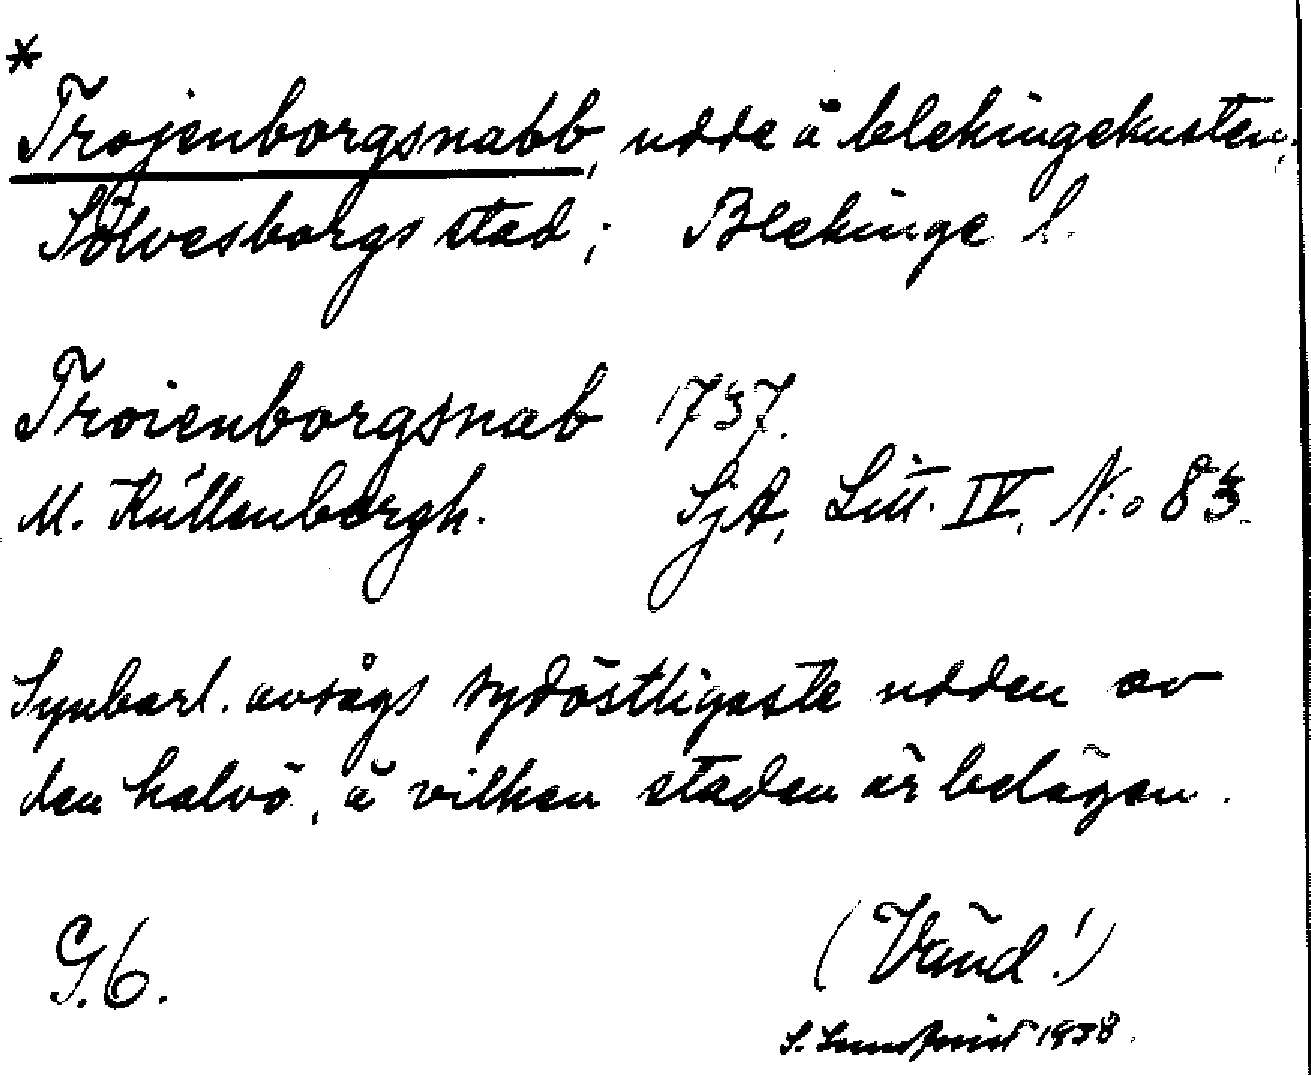 *
Trojenborgsnabb, udde å blekingekusten,
Sölvesborgs stad; Blekinge l.
Troienborgsnab 1737.
M. Küllenbergh. SjA, Litt. IV, N:o 83.
Synbarl. avsågs sydöstligaste udden av
den halvö, å vilken staden är belägen.
G.6.
(Vänd!)
S. 1938.